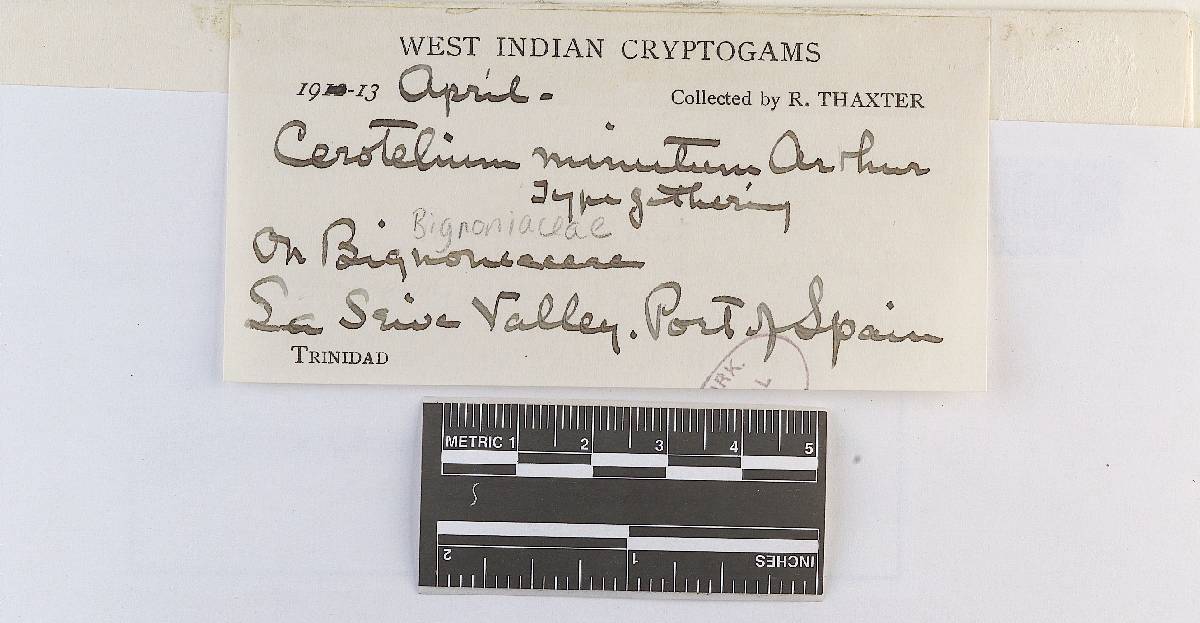 WEST INDIAN CRYPTOGAMS
1912-13 April.
Collected by R. THAXTER
Cerotelium minutum Arthur
Type gathering
Bignoniaceae
On Bignoniaceae
La Seiva Valley. Port of Spain
TRINIDAD
METRIC 1 2 3 4 5
2 1 INCHES